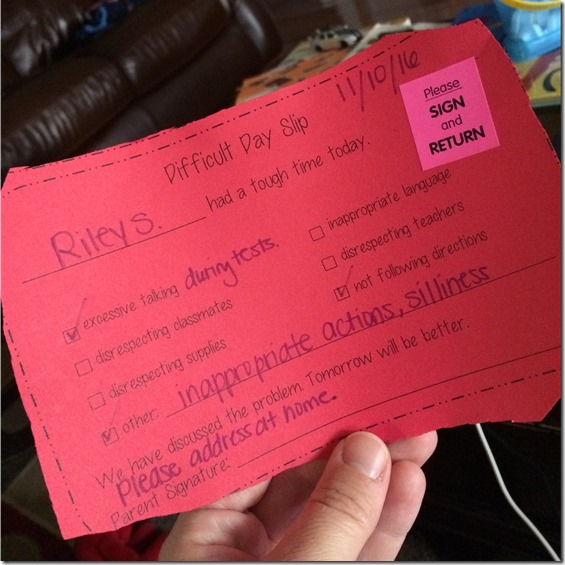 11/10/16
Please
SIGN
and
RETURN
Difficult Day Slip
Riley S. had a tough time today.
excessive talking during tests.
disrespecting classmates
disrespecting supplies
inappropriate language
disrespecting teachers
not following directions
other: inappropriate actions, silliness
We have discussed the problem. Tomorrow will be better.
Please address at home.
Parent Signature: